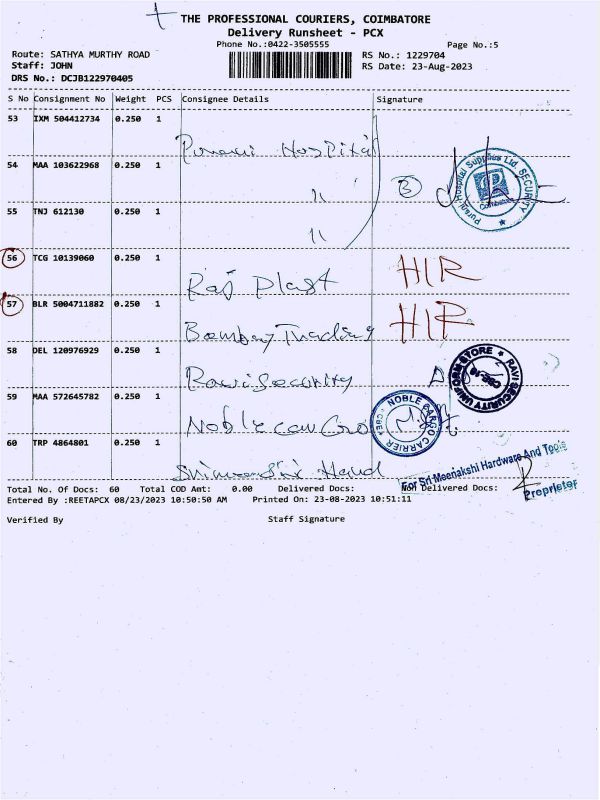 THE PROFESSIONAL COURIERS, COIMBATORE
Delivery Runsheet - PCX
Phone No.:0422-3505555
Page No.:5
Route: SATHYA MURTHY ROAD
RS No.: 1229704
Staff: JOHN
RS Date: 23-Aug-2023
DRS No.: DCJB122970405
S No Consignment No Weight PCS Consignee Details Signature
53 IXM 504412734 0.250 1
Hospital
54 MAA 103622968 0.250 1
"
3
Purani Hospital Supplies Ltd. SECURITY
Coimbatore
55 TNJ 612130 0.250 1
"
56 TCG 10139060 0.250 1
Raj Plast HIR
57 BLR 5004711882 0.250 1
Bombay Trading HIR
58 DEL 120976929 0.250 1
Ravi Security
RAVI SECURITY UNIFORM STORE
CBE-18
59 MAA 572645782 0.250 1
Noble Car Cro
NOBLE CARGO CARRIER
CBE
60 TRP 4864801 0.250 1
For Sri Meenakshi Hardware And Tools
Proprietor
Total No. Of Docs: 60 Total COD Amt: 0.00 Delivered Docs: Non Delivered Docs:
Entered By :REETAPCX 08/23/2023 10:50:50 AM Printed On: 23-08-2023 10:51:11
Verified By Staff Signature